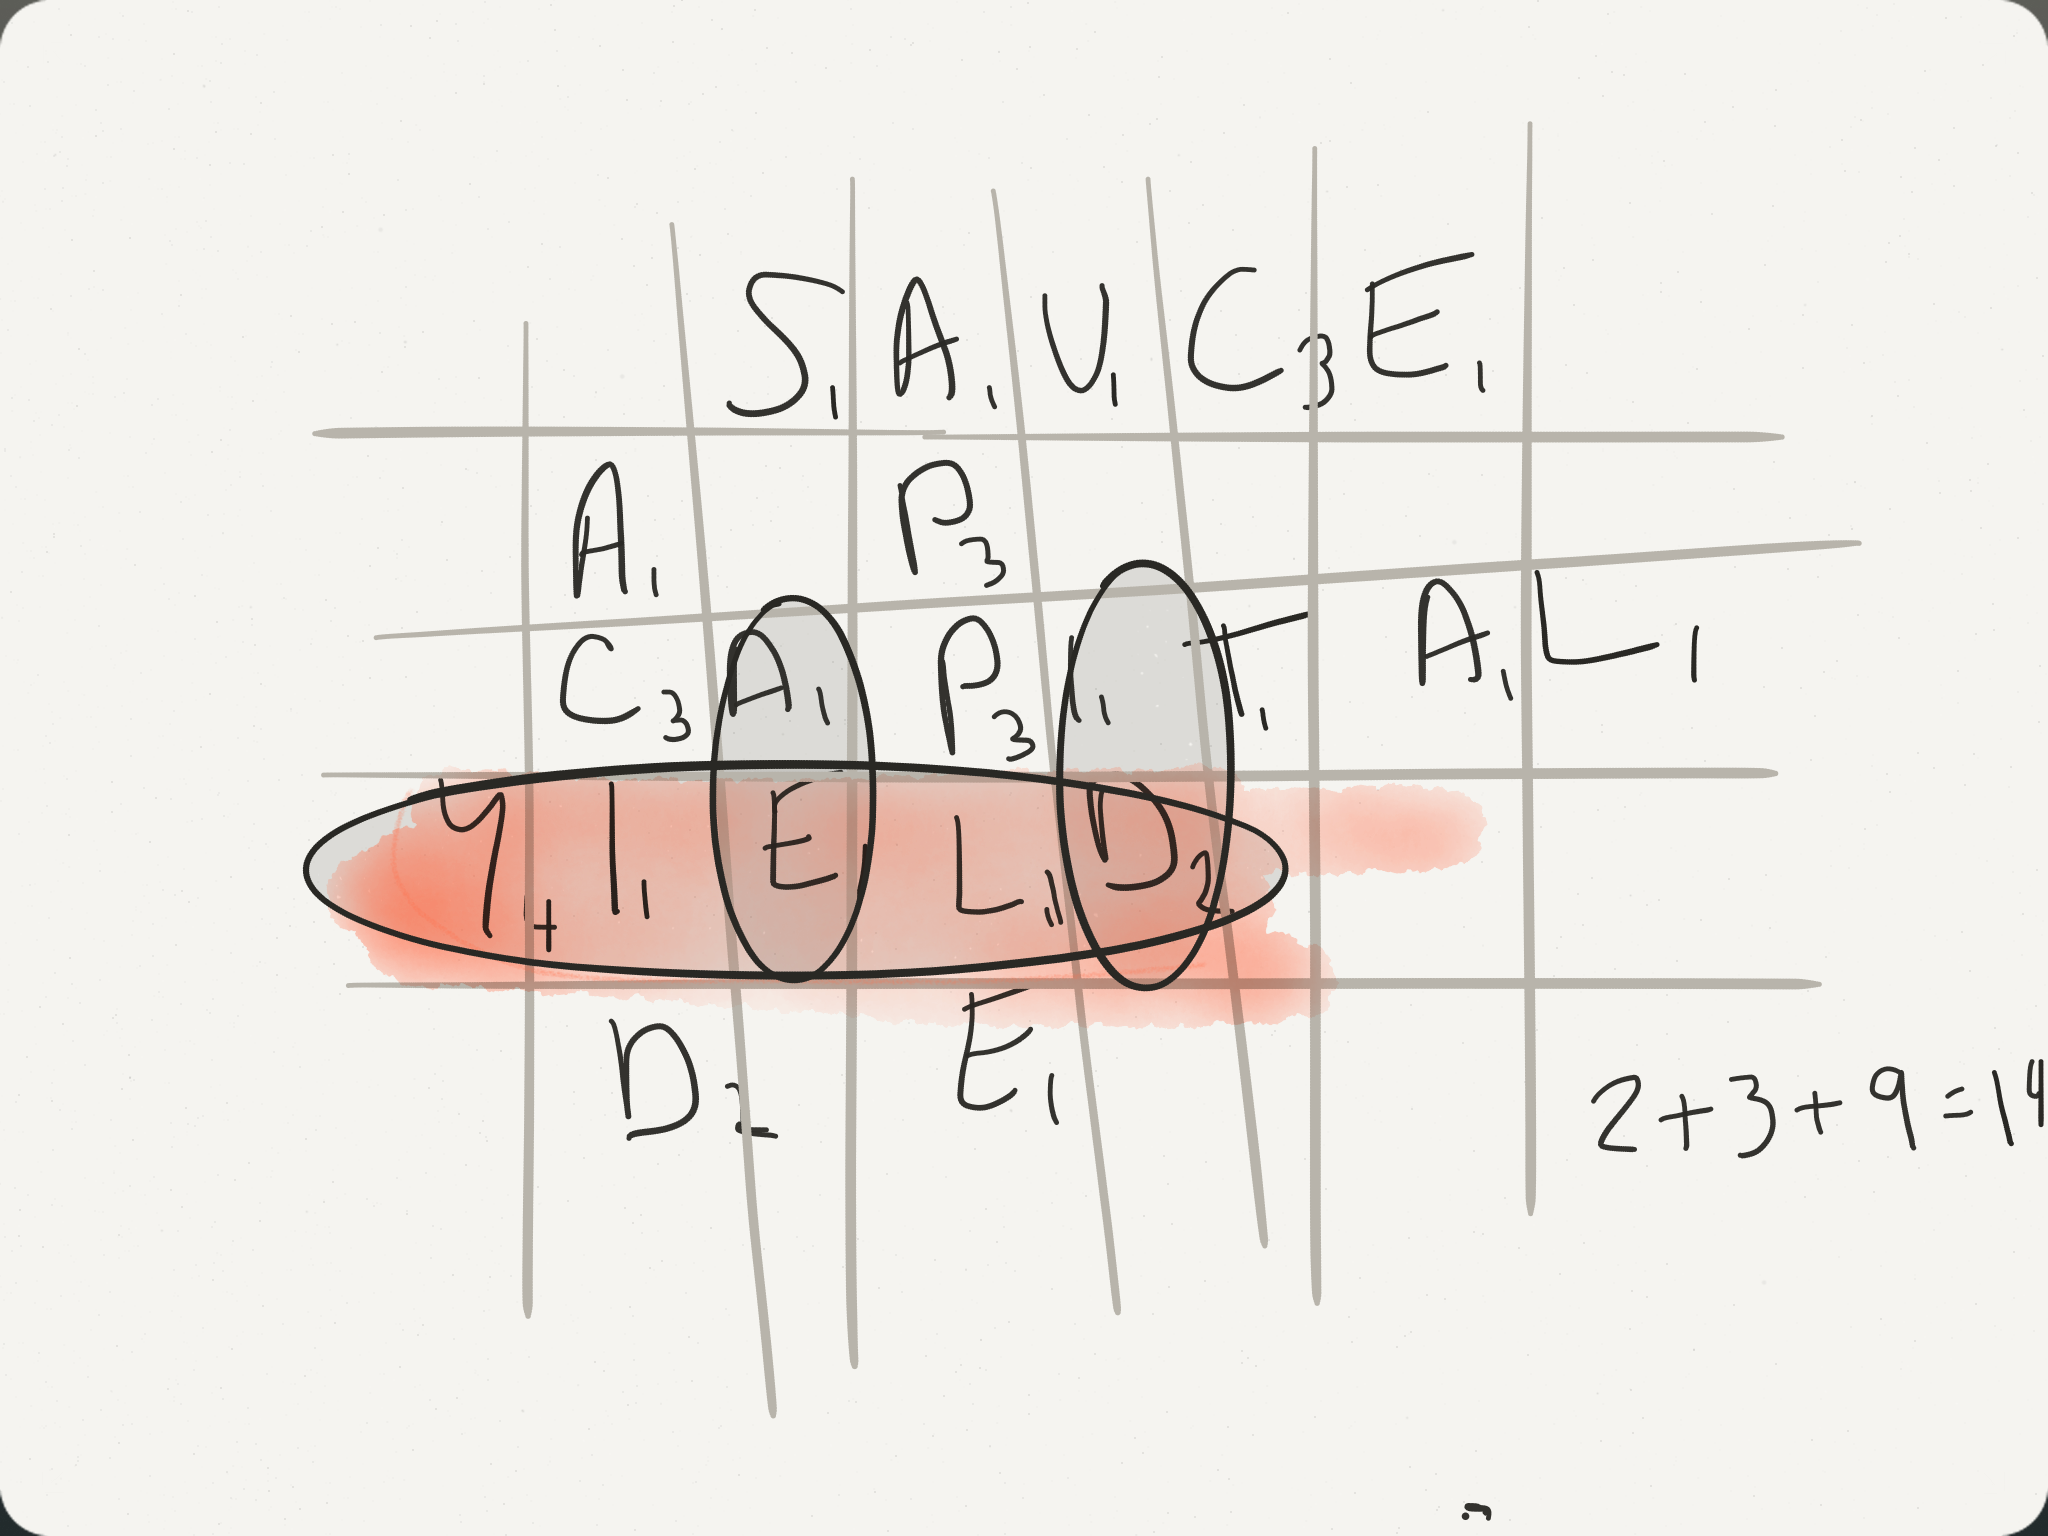 S1 A1 U1 C3 E1
A1 P3
C3 A1 P3 I1 T1 A1 L1
Y4 I1 E1 L1 D2
D2 E1
2+3+9=14